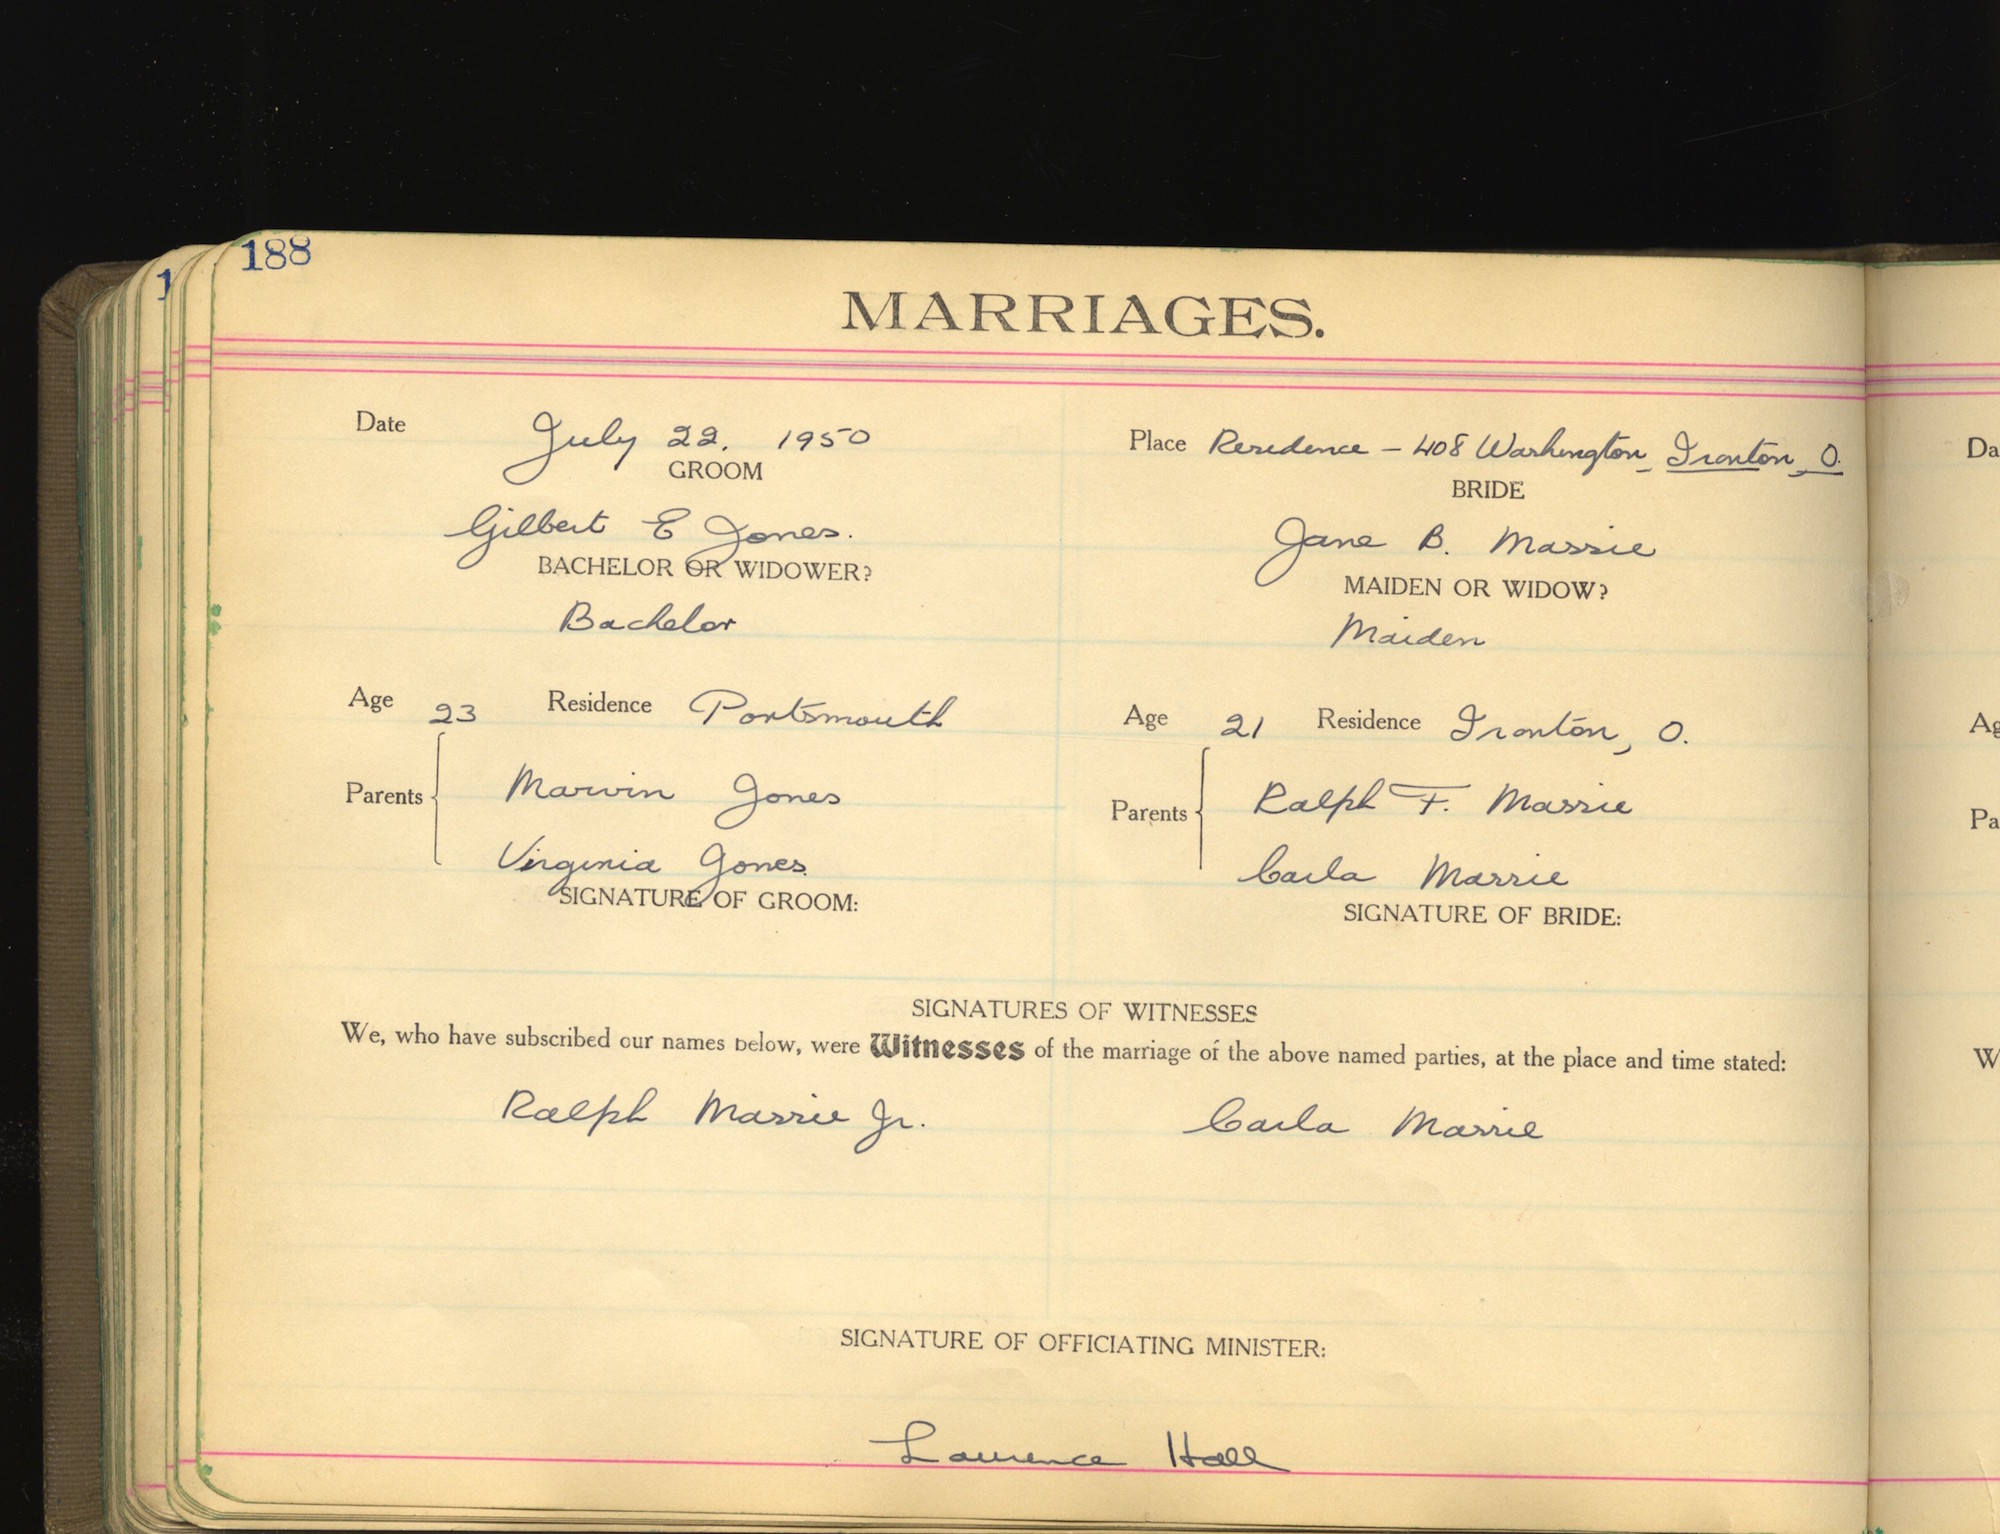 188
1
MARRIAGES.
Date July 22, 1950
Place Residence - 408 Washington, Ironton, O.
GROOM
BRIDE
Gilbert E Jones.
Jane B. Massie
BACHELOR OR WIDOWER?
MAIDEN OR WIDOW?
Bachelor
Maiden
Age 23 Residence Portsmouth
Age 21 Residence Ironton, O.
Parents Marvin Jones
Virginia Jones
Parents Ralph F. Massie
Carla Massie
SIGNATURE OF GROOM:
SIGNATURE OF BRIDE:
SIGNATURES OF WITNESSES
We, who have subscribed our names below, were Witnesses of the marriage of the above named parties, at the place and time stated:
Ralph Massie Jr.
Carla Massie
SIGNATURE OF OFFICIATING MINISTER:
Laurence Hall
Da
Ag
Pa
W